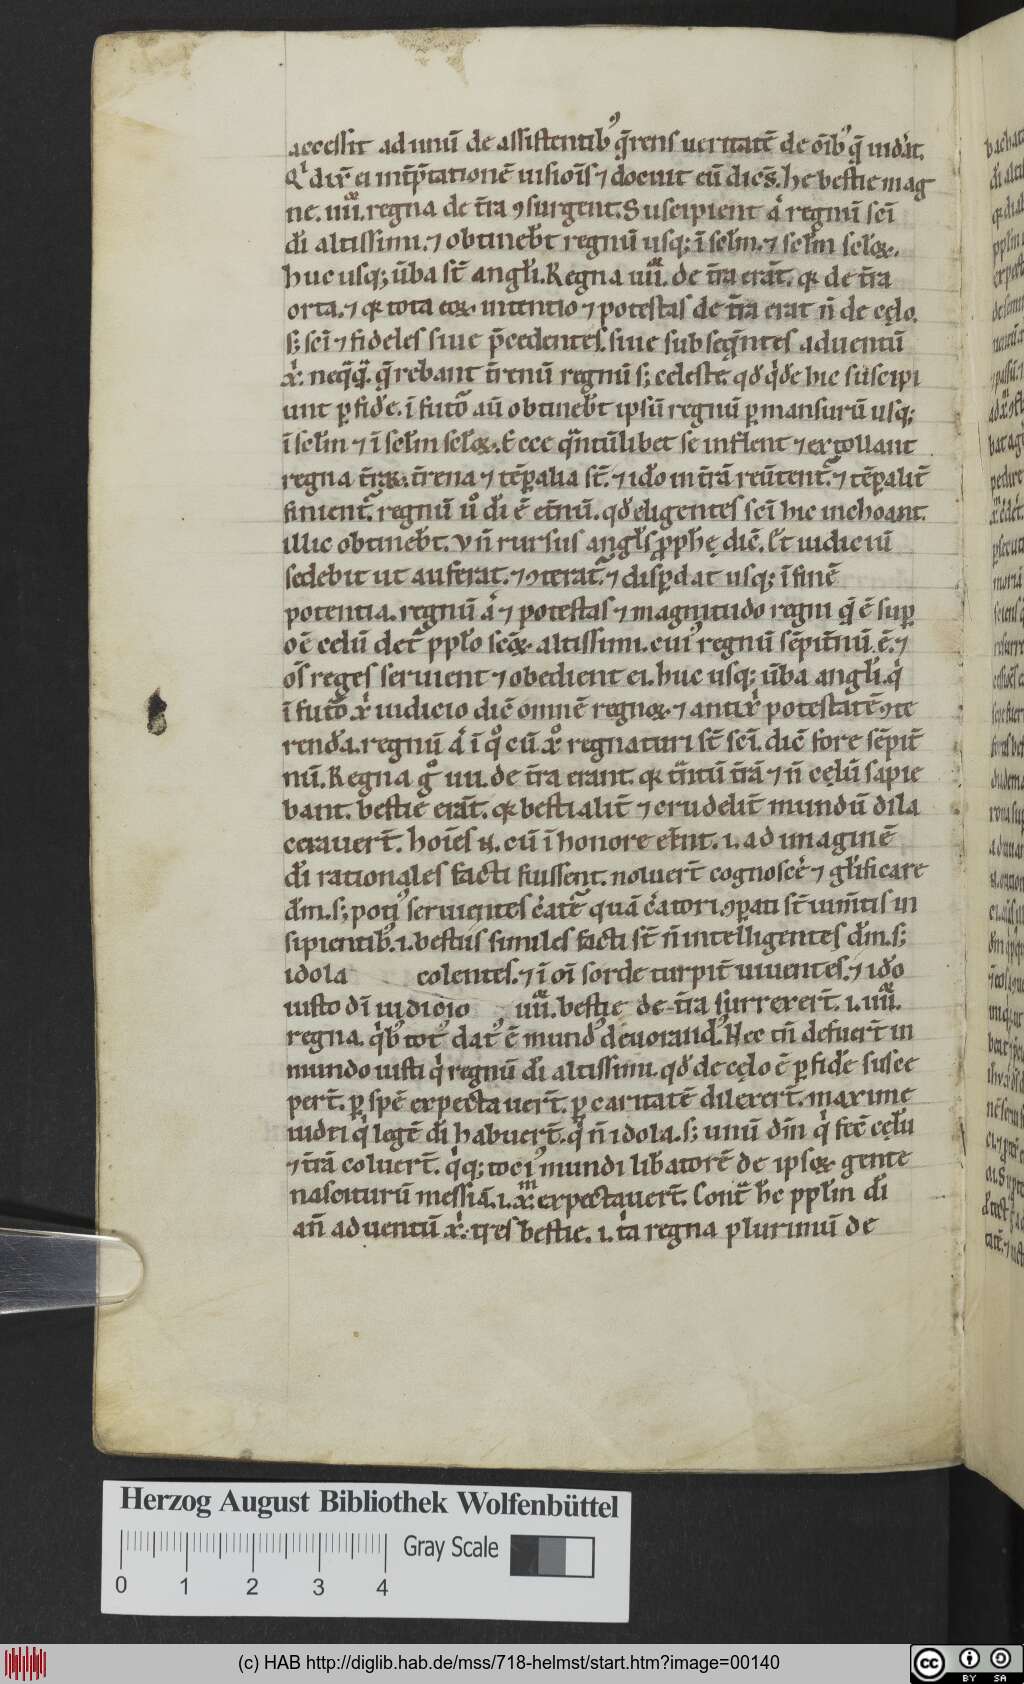 accessit ad unū de assistentibꝰ q̄rens ueritatē de oībꝰ q̄ uidit.
Qͥ dix̄ ei int̄p̄tationē uisiōis ⁊ docuit eū dicēs. he bestie mag
ne .iiii. regna de t̄ra ꝯsurgent. Suscipient aͥ regnū sc̄i
dī altissimi. ⁊ obtineb̄t regnū usq; ī sc̄lm. ⁊ sc̄lm sc̄loꝝ.
huc usq; ūba st̄ angl̄i. Regna .iiii. de t̄ra erāt. qꝛ de t̄ra
orta. ⁊ qꝛ tota eoꝝ intentio ⁊ potestas de t̄ra erat n̄ de cęlo.
s; sc̄i ⁊ fideles siue p̄cedentes. siue subseq̄ntes aduentū
xͥ. neq̄q̄. q̄rebant t̄renū regnū s; celeste. qd̄ qͥde hic suscipi
unt ꝑ fidē. ī futō aū obtineb̄t ipsū regnū ꝑmansurū usq;
ī sc̄lm ⁊ ī sc̄lm sc̄loꝝ. Ecce qͣntūlibet se inflent ⁊ extollant
regna t̄raꝝ. t̄rena ⁊ tēꝑalia st̄. ⁊ id̄o in t̄rā reūtent᷑. ⁊ tēꝑalit̄
finient᷑. regnū ū dī ē et̄nū. qd̄ eligentes sc̄i hic inchoant.
illic obtineb̄t. Vn̄ rursus angl̄s ꝓph̄ę dic̄. Et iudiciū
sedebit ut auferat᷑. ⁊ ꝯterat᷑. ⁊ disꝑdat usq; ī finē
potentia. regnū aͥ ⁊ potestas ⁊ magnitudo regni q̄ ē suꝑ
oē celū det᷑ ppl̄o sc̄oꝝ altissimi. cuiꝰ regnū sēpit̄nū .ē. ⁊
oēs reges seruient ⁊ obedient ei. huc usq; ūba angl̄i. qͥ
ī futō xͥ iudicio dic̄ omnē regnoꝝ. ⁊ antixͥ potestatē ꝯte
rendā. regnū aͥ ī qͦ cū xͦ regnaturi st̄ sc̄i. dic̄ fore sēpit̄
nū. Regna gͦ .iiii. de t̄ra erant. qꝛ tm̄tū t̄rā ⁊ n̄ cęlū sapie
bant. bestie erāt. qꝛ bestialit̄ ⁊ crudelit̄ mundū dila
cerauert̄. hoīes n̄. cū ī honore eēnt. i. ad imaginē
dī rationales facti fuissent. noluert̄ cognoscē ⁊ gl̄ificare
dm̄. s; potiꝰ seruientes cͣatē quā cͣatori. ꝯpati st̄ iumtis in
sipientibꝰ. i. bestiis similes facti st̄ n̄ intelligentes dm̄. s;
idola colentes. ⁊ ī oī sorde turpit̄ uiuentes. ⁊ id̄o
iusto dī iudicio .iiii. bestie de t̄ra surrexert̄. i. iiii.
regna. qͥbꝰ totꝰ datꝰ ē mundꝰ deuorandꝰ. Nec tn̄ defuert̄ in
mundo iusti qͥ regnū dī altissimi. qd̄ de cęlo ē ꝑ fidē susce
pert̄. ꝑ spē expectauert̄. ꝑ caritatē dilexert̄. maxime
iudei qͥ legē dī habuert̄. qͥ n̄ idola. s; unū dm̄ qͥ fec̄ cęlū
⁊ t̄rā coluert̄. qͥq; tociꝰ mundi lib̄atorē de ipsoꝝ gente
nasciturū messiā. i. xm̄ expectauert̄. Cont̄ hc̄ ppl̄m dī
an̄ aduentū xͥ. tres bestie. i. tͥa regna plurimū de
Herzog August Bibliothek Wolfenbüttel
Gray Scale
0 1 2 3 4
(c) HAB http://diglib.hab.de/mss/718-helmst/start.htm?image=00140
cc BY SA